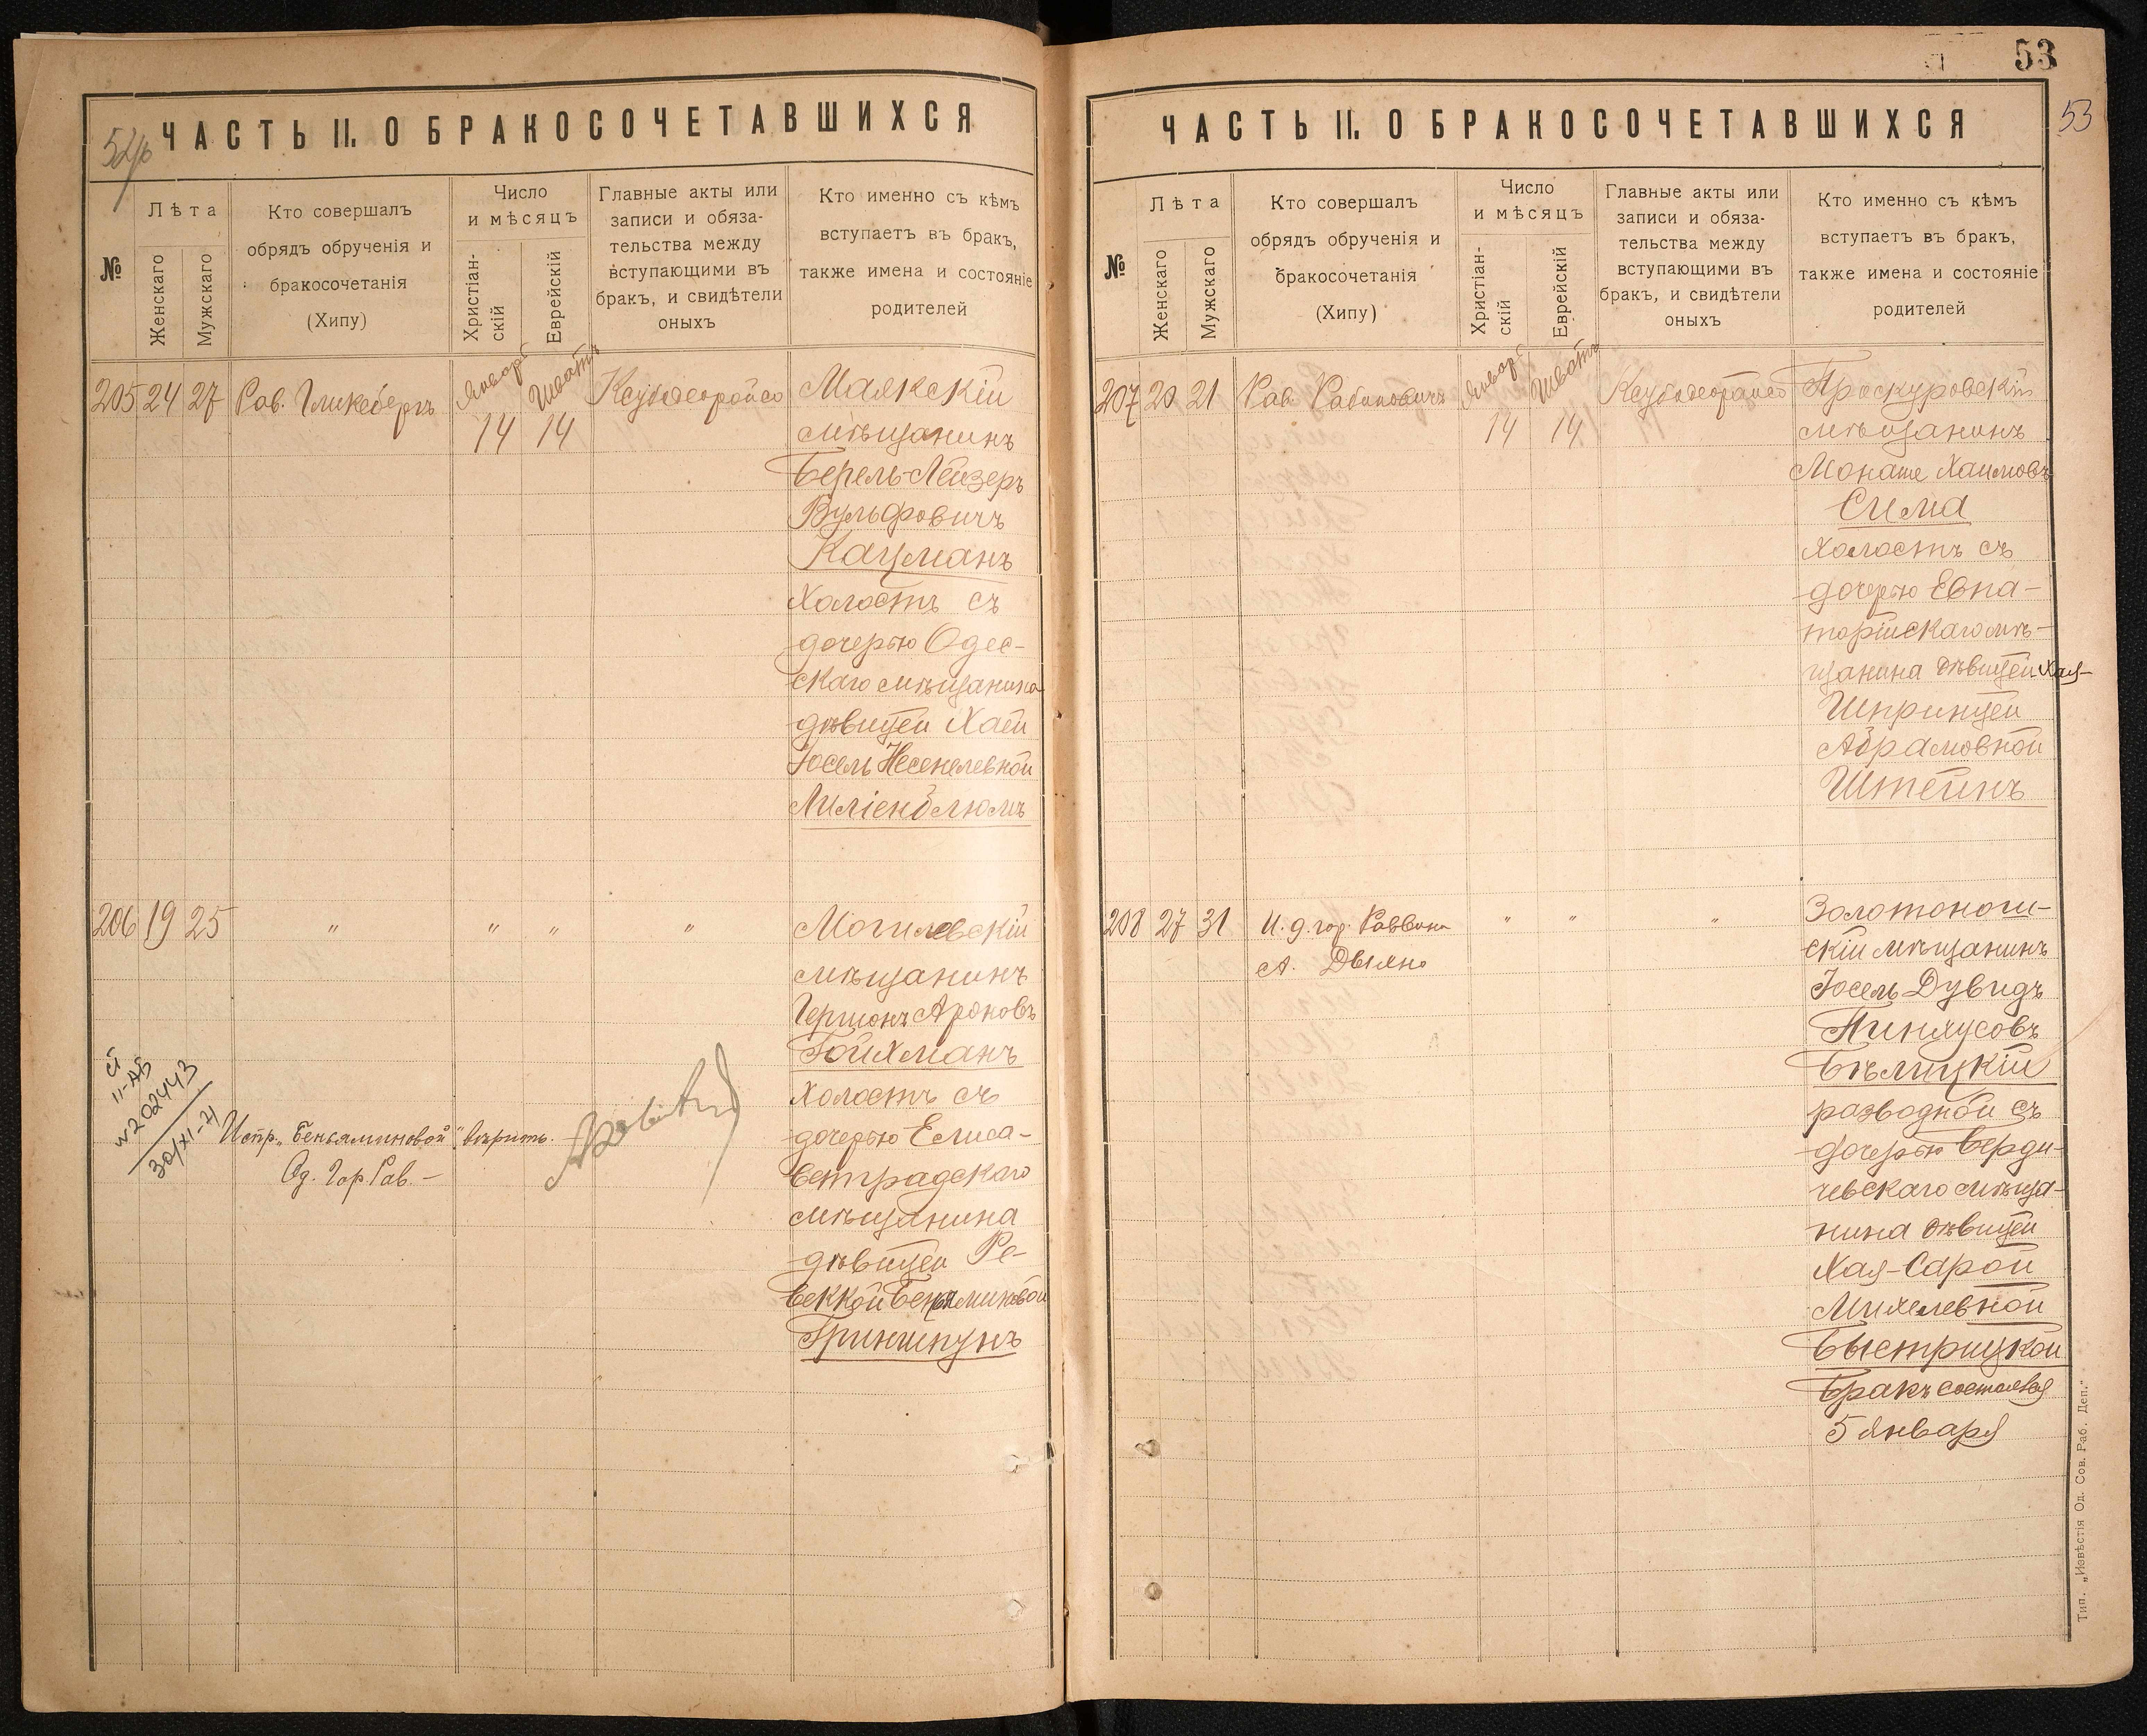 52об
ЧАСТЬ II. О БРАКОСОЧЕТАВШИХСЯ
№
Лѣта
Женскаго
Мужскаго
Кто совершалъ
обрядъ обрученія и
бракосочетанія
(Хипу)
Число
и мѣсяцъ
Христіан-
скій
Еврейскій
Главные акты или
записи и обяза-
тельства между
вступающими въ
бракъ, и свидѣтели
оныхъ
Кто именно съ кѣмъ
вступаетъ въ бракъ,
также имена и состояніе
родителей
205 24 27 Рав. Гликсбергъ
Январь 14
Шватъ 14
Маякскій
мѣщанинъ
Берель-Лейзеръ
Вульфовичъ
Кацманъ
Холостъ съ
дочерью Одес-
скаго мѣщанина
дѣвицей Хаей
Іосель Несенелевной
Лиліенблюмъ
206 19 25 " " " "
Могилевскій
мѣщанинъ
Гершонъ Ароновъ
Гойхманъ
Холостъ съ
дочерью Елиса-
ветградскаго
мѣщанина
дѣвицей Ре-
веккой Беньяминовой
Гриншпунъ
II-АБ
№202443
30/XI-71
Испр. „Беньяминовой" вѣрить.
Од. Гор. Рав. —
53
53
ЧАСТЬ II. О БРАКОСОЧЕТАВШИХСЯ
№
Лѣта
Женскаго
Мужскаго
Кто совершалъ
обрядъ обрученія и
бракосочетанія
(Хипу)
Число
и мѣсяцъ
Христіан-
скій
Еврейскій
Главные акты или
записи и обяза-
тельства между
вступающими въ
бракъ, и свидѣтели
оныхъ
Кто именно съ кѣмъ
вступаетъ въ бракъ,
также имена и состояніе
родителей
207 20 21 Рав. Рабиновичъ
Январь 14
Шватъ 14
Проскуровскій
мѣщанинъ
Монаше Хаимовъ
Сима
Холостъ съ
дочерью Евпа-
торійскаго мѣ-
щанина дѣвицей Хая-
Шпринцей
Абрамовной
Штейнъ
208 27 31 И. д. гор. Раввина
А. Двѣяно
" " "
Золотоноши-
скій мѣщанинъ
Іосель Дувидъ
Пинхусовъ
Бѣлицкій
разводной съ
дочерью Берди-
чевскаго мѣща-
нина дѣвицей
Хая-Сарой
Михелевной
Быстрицкой
Бракъ состоялся
5 Января
Тип. „Извѣстія Од. Сов. Раб. Деп."